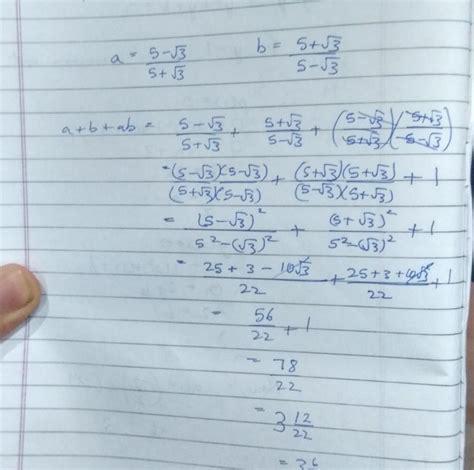 a = (5-√3)/(5+√3)    b = (5+√3)/(5-√3)
a+b+ab = (5-√3)/(5+√3) + (5+√3)/(5-√3) + ((5-√3)/(5+√3))((5+√3)/(5-√3))
= (5-√3)(5-√3)/(5+√3)(5-√3) + (5+√3)(5+√3)/(5-√3)(5+√3) + 1
= (5-√3)²/(5²-(√3)²) + (5+√3)²/(5²-(√3)²) + 1
= (25+3-10√3)/22 + (25+3+10√3)/22 + 1
= 56/22 + 1
= 78/22
= 3 12/22